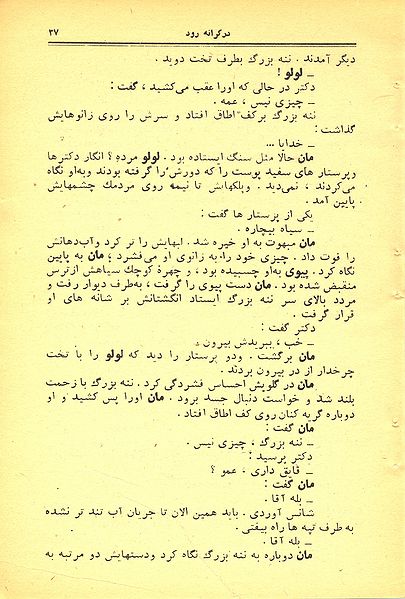 درکرانه رود
۳۷
دیگر آمدند . ننه بزرگ بطرف تخت دوید .
ــ لولو !
دکتر در حالی که اورا عقب می‌کشید ، گفت :
ــ چیزی نیس ، عمه .
ننه بزرگ برکف اطاق افتاد و سرش را روی زانوهایش
گذاشت :
ــ خدایا ...
مان حالا مثل سنگ ایستاده بود . لولو مرده ؟ انگار دکترها
وپرستار های سفید پوست را که دورش را گرفته بودند وبه‌او نگاه
می‌کردند ، نمی‌دید . وپلکهایش تا نیمه روی مردمك چشمهایش
پایین آمد .
یکی از پرستار ها گفت :
ــ سیاه بیچاره .
مان مبهوت به او خیره شد . لبهایش را تر کرد وآب‌دهانش
را قوت داد . چیزی خود را به زانوی او می‌فشرد ؛ مان به پایین
نگاه کرد . پیوی به‌او چسبیده بود ، و چهرهٔ کوچك سیاهش ازترس
منقبض شده بود . مان دست پیوی را گرفت ، به‌طرف دیوار رفت و
مردد بالای سر ننه بزرگ ایستاد انگشتانش بر شانه های او
قرار گرفت .
دکتر گفت :
ــ خب ، ببریدش بیرون .
مان برگشت . ودو پرستار را دید که لولو را با تخت
چرخدار از در بیرون بردند .
مان در گلویش احساس فشردگی کرد . ننه بزرگ با زحمت
بلند شد و خواست دنبال جسد برود . مان اورا پس کشید و او
دوباره گریه کنان روی کف اطاق افتاد .
مان گفت :
ــ ننه بزرگ ، چیزی نیس .
دکتر پرسید :
ــ قایق داری ، عمو ؟
مان گفت :
ــ بله آقا .
شانس آوردی . باید همین الان تا جریان آب تند تر نشده
به طرف تپه ها راه بیفتی .
ــ بله آقا .
مان دوباره به ننه بزرگ نگاه کرد ودستهایش دو مرتبه به